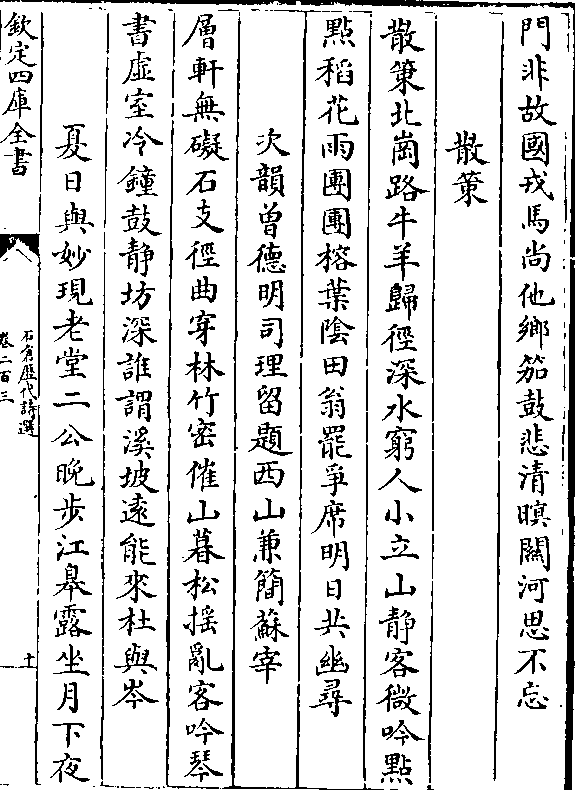 門非故國戎馬尚他鄉笳鼓悲清暝關河思不忘
散策
散策北崗路牛羊歸徑深水窮人小立山静客微吟點
點稻花雨團團榕葉陰田翁罷爭席明日共幽尋
次韻曾德明司理留題西山兼簡蘇宰
層軒無礙石支徑曲穿林竹密催山暮松揺亂客吟琴
書虚室冷鐘鼓静坊深誰謂溪坡逺能來杜與岑
夏日與妙現老堂二公晚步江臯露坐月下夜
欽定四庫全書
石倉歴代詩選
卷二百三
十